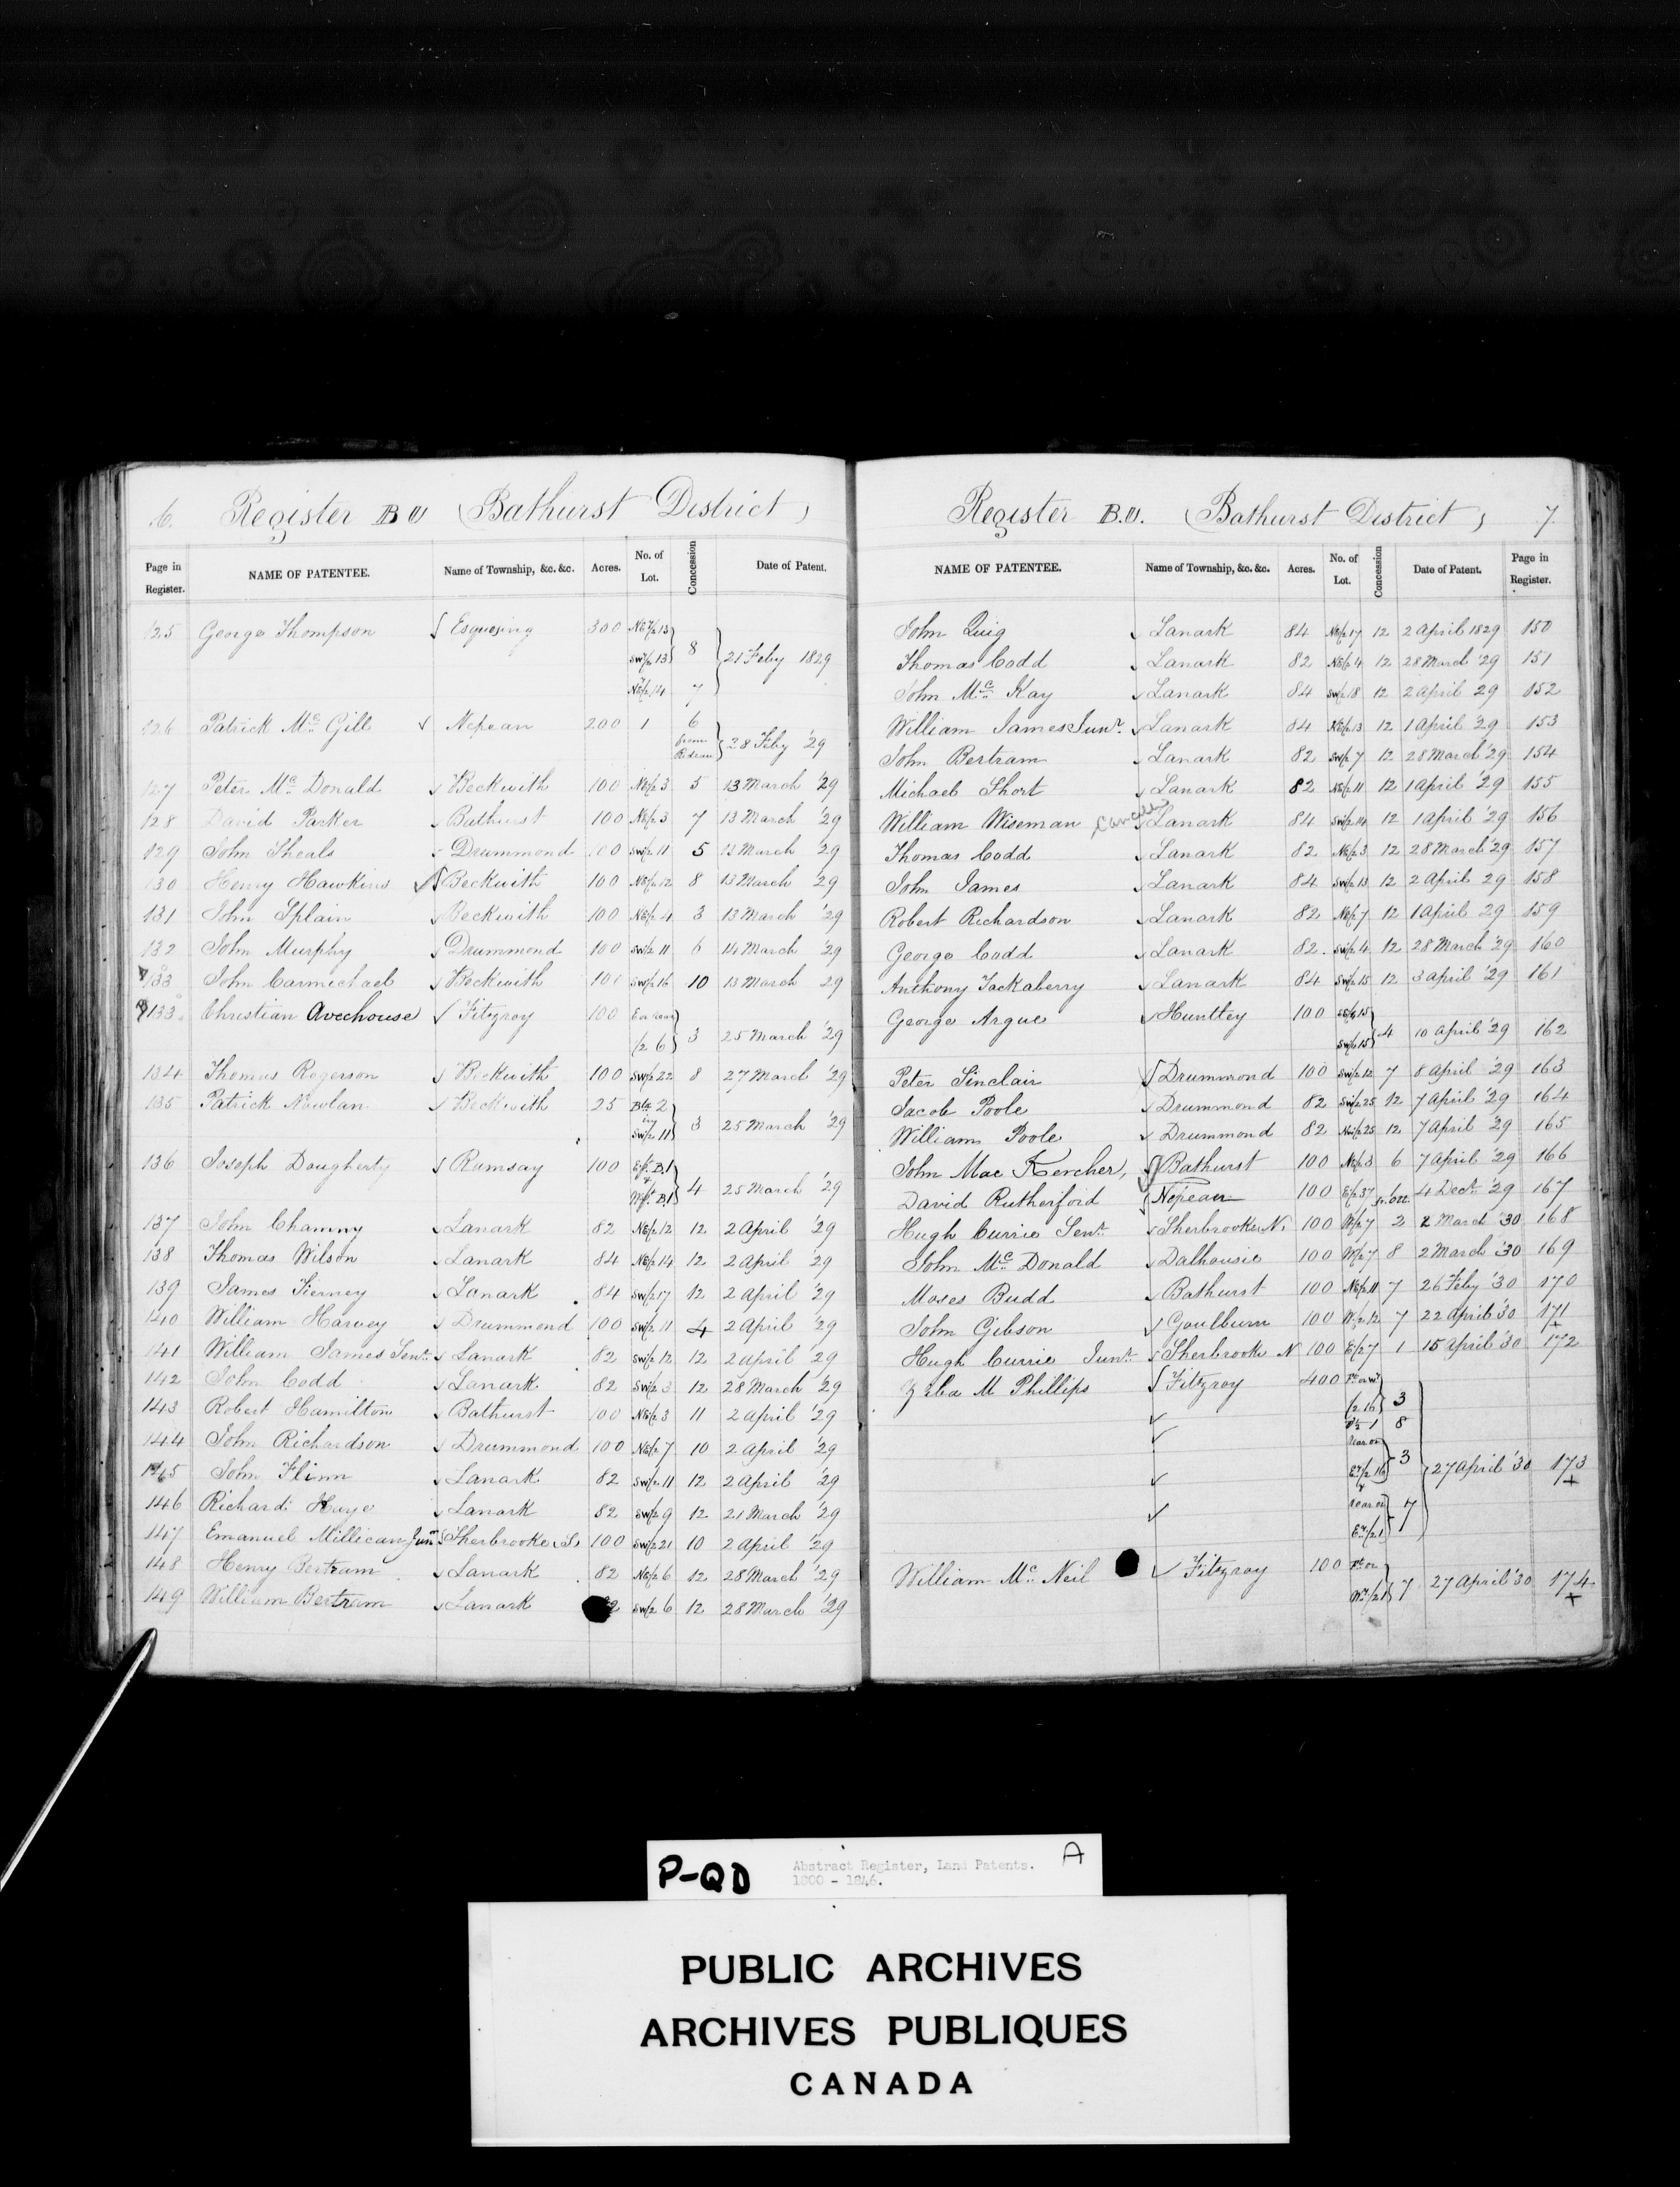 6. Register B.O (Bathurst District)
Page in Register. NAME OF PATENTEE. Name of Township, &c. &c. Acres. No. of Lot. Concession Date of Patent.
125 George Thompson Esquesing 300 NE½13
SW½13 8 21 Feby 1829
NE½14 7
126 Patrick Mc Gill √ Nepean 200 1 6
from Rideau 28 Feby '29
127 Peter Mc Donald √ Beckwith 100 NE½ 3 5 13 March '29
128 David Parker √ Bathurst 100 NE½ 3 7 13 March '29
129 John Sheals Drummond 100 SW½ 11 5 13 March '29
130 Henry Hawkins √ Beckwith 100 NE½ 12 8 13 March '29
131 John Splain √ Beckwith 100 NE½ 4 3 13 March '29
132 John Murphy √ Drummond 100 SW½ 11 6 14 March '29
133 John Carmichael √ Beckwith 100 SW½ 16 10 13 March 29
133 Christian Avechouse √ Fitzroy 100 E or rear
½ 6 3 25 March '29
134 Thomas Rogerson √ Beckwith 100 SW½ 22 8 27 March '29
135 Patrick Nowlan √ Beckwith 25 Blk 2
in
SW½ 11 3 25 March '29
136 Joseph Dougherty √ Ramsay 100 E pt. B1
W pt. B1 4 25 March '29
137 John Chamny √ Lanark 82 NE½ 12 12 2 April '29
138 Thomas Wilson √ Lanark 84 NE½ 14 12 2 April '29
139 James Tierney √ Lanark 84 SW½ 17 12 2 April '29
140 William Harvey √ Drummond 100 SW½ 11 4 2 April '29
141 William James Senr. √ Lanark 82 SW½ 12 12 2 April '29
142 John Codd √ Lanark 82 SW½ 3 12 28 March '29
143 Robert Hamilton √ Bathurst 100 NE½ 3 11 2 April '29
144 John Richardson √ Drummond 100 NE½ 7 10 2 April '29
145 John Flinn √ Lanark 82 SW½ 11 12 2 April '29
146 Richard Haye √ Lanark 82 SW½ 9 12 21 March '29
147 Emanuel Millican Junr Sherbrooke S. 100 SW½ 21 10 2 April '29
148 Henry Bertram √ Lanark 82 NE½ 6 12 28 March '29
149 William Bertram √ Lanark 82 SW½ 6 12 28 March '29
Register B.O. (Bathurst District) 7.
NAME OF PATENTEE. Name of Township, &c. &c. Acres. No. of Lot. Concession Date of Patent. Page in Register.
John Quig √ Lanark 84 NE½ 17 12 2 April 1829 150
Thomas Codd √ Lanark 82 NE½ 4 12 28 March '29 151
John Mc Kay √ Lanark 84 SW½ 18 12 2 April 29 152
William James Junr. √ Lanark 84 NE½ 13 12 1 April '29 153
John Bertram √ Lanark 82 SW½ 7 12 28 March '29 154
Michael Short √ Lanark 82 NE½ 11 12 1 April '29 155
William Wiseman Cancelled √ Lanark 84 SW½ 14 12 1 April '29 156
Thomas Codd √ Lanark 82 NE½ 3 12 28 March '29 157
John James √ Lanark 84 SW½ 13 12 2 April 29 158
Robert Richardson √ Lanark 82 NE½ 7 12 1 April 29 159
George Codd √ Lanark 82 SW½ 4 12 28 March '29 160
Anthony Tackaberry √ Lanark 84 SW½ 15 12 3 April '29 161
George Argue √ Huntley 100 15
SW½ 15 4 10 April '29 162
Peter Sinclair √ Drummond 100 SW½ 12 7 8 April '29 163
Jacob Poole √ Drummond 82 SW½ 25 12 7 April '29 164
William Poole √ Drummond 82 NE½ 25 12 7 April '29 165
John Mac Kercher, Bathurst 100 NE½ 3 6 7 April '29 166
David Rutherford Nepean 100 E½ 37 4 Decr. '29 167
Hugh Currie Senr. Sherbrooke N. 100 W½ 7 2 2 March '30 168
John Mc Donald √ Dalhousie 100 W½ 7 8 2 March '30 169
Moses Budd √ Bathurst 100 NE½ 11 7 26 Feby '30 170
John Gibson √ Goulburn 100 W½ 12 7 22 April '30 171
Hugh Currie Junr. Sherbrooke N 100 E½ 7 1 15 April '30 172
Ziba M Phillips √ Fitzroy 400
½ 16 3
√ 1 8
√ Rear or
√ Er.½ 16 3 27 April '30 173
√ Rear or
Er.½ 1 7
William Mc Neil √ Fitzroy 100
Wr.½ 21 7 27 April '30 174
P-QD Abstract Register, Land Patents. A
1800 - 1846.
PUBLIC ARCHIVES
ARCHIVES PUBLIQUES
CANADA